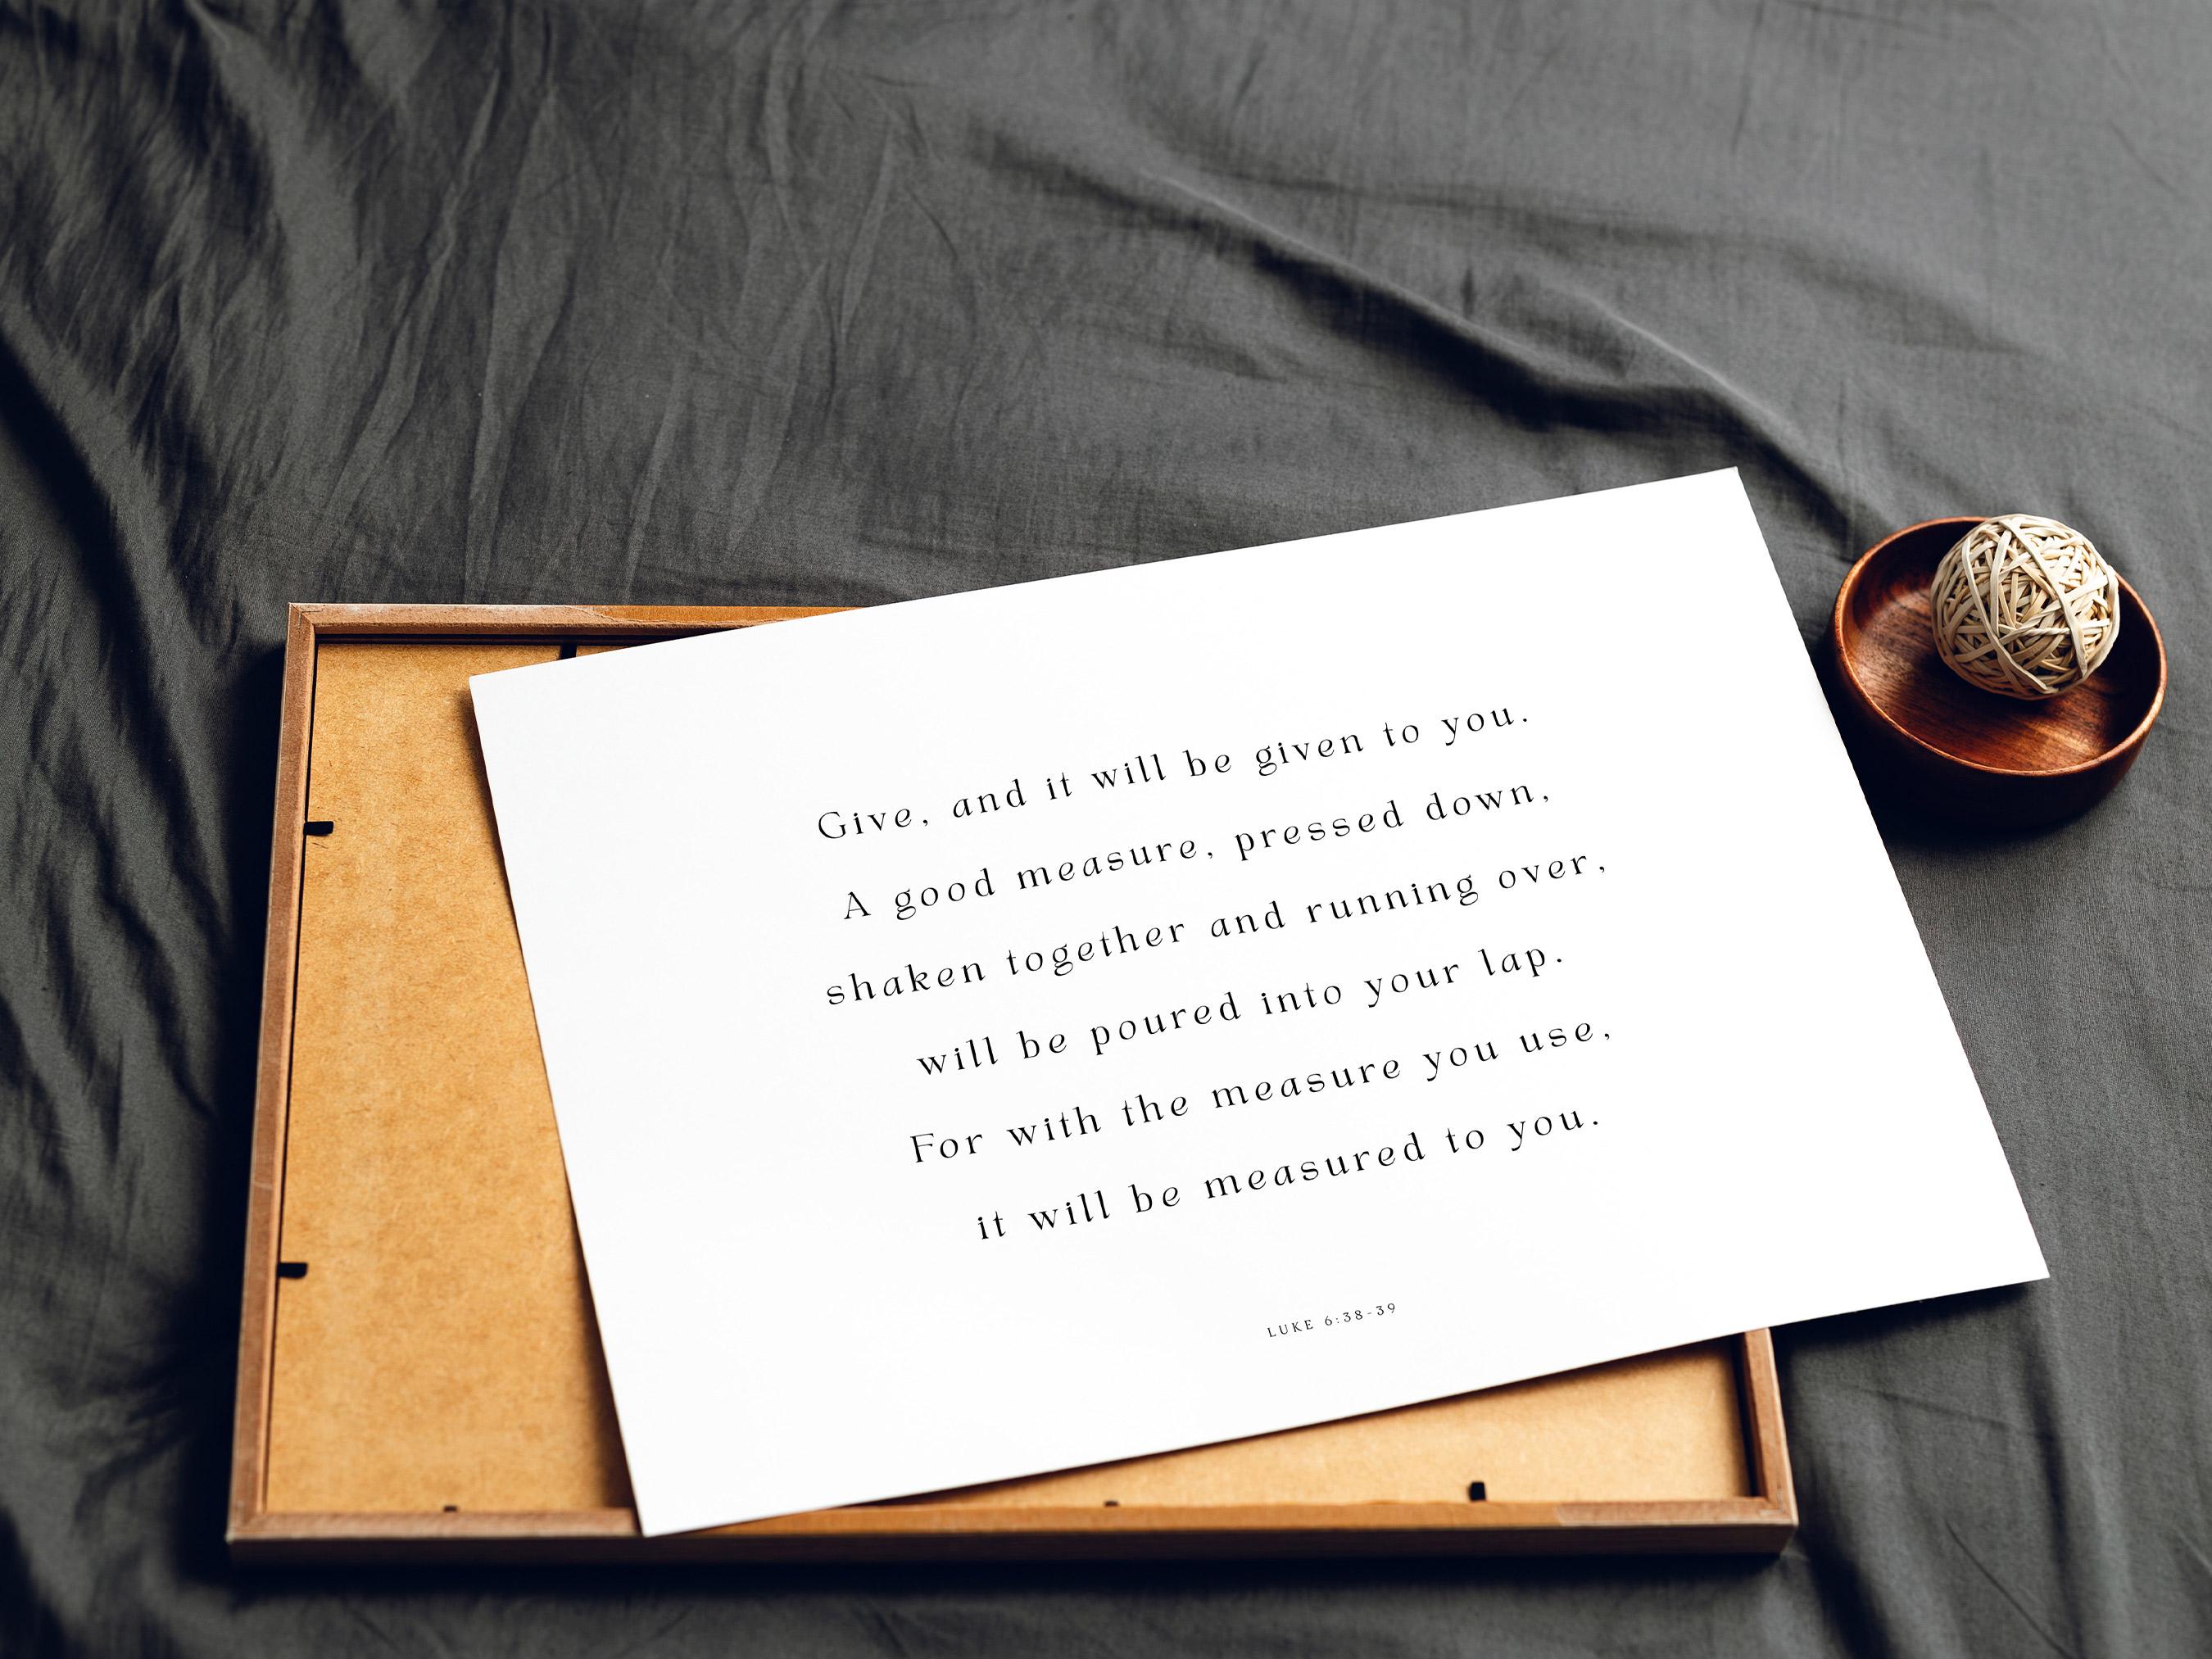 Give, and it will be given to you.
A good measure, pressed down,
shaken together and running over,
will be poured into your lap.
For with the measure you use,
it will be measured to you.
LUKE 6:38-39